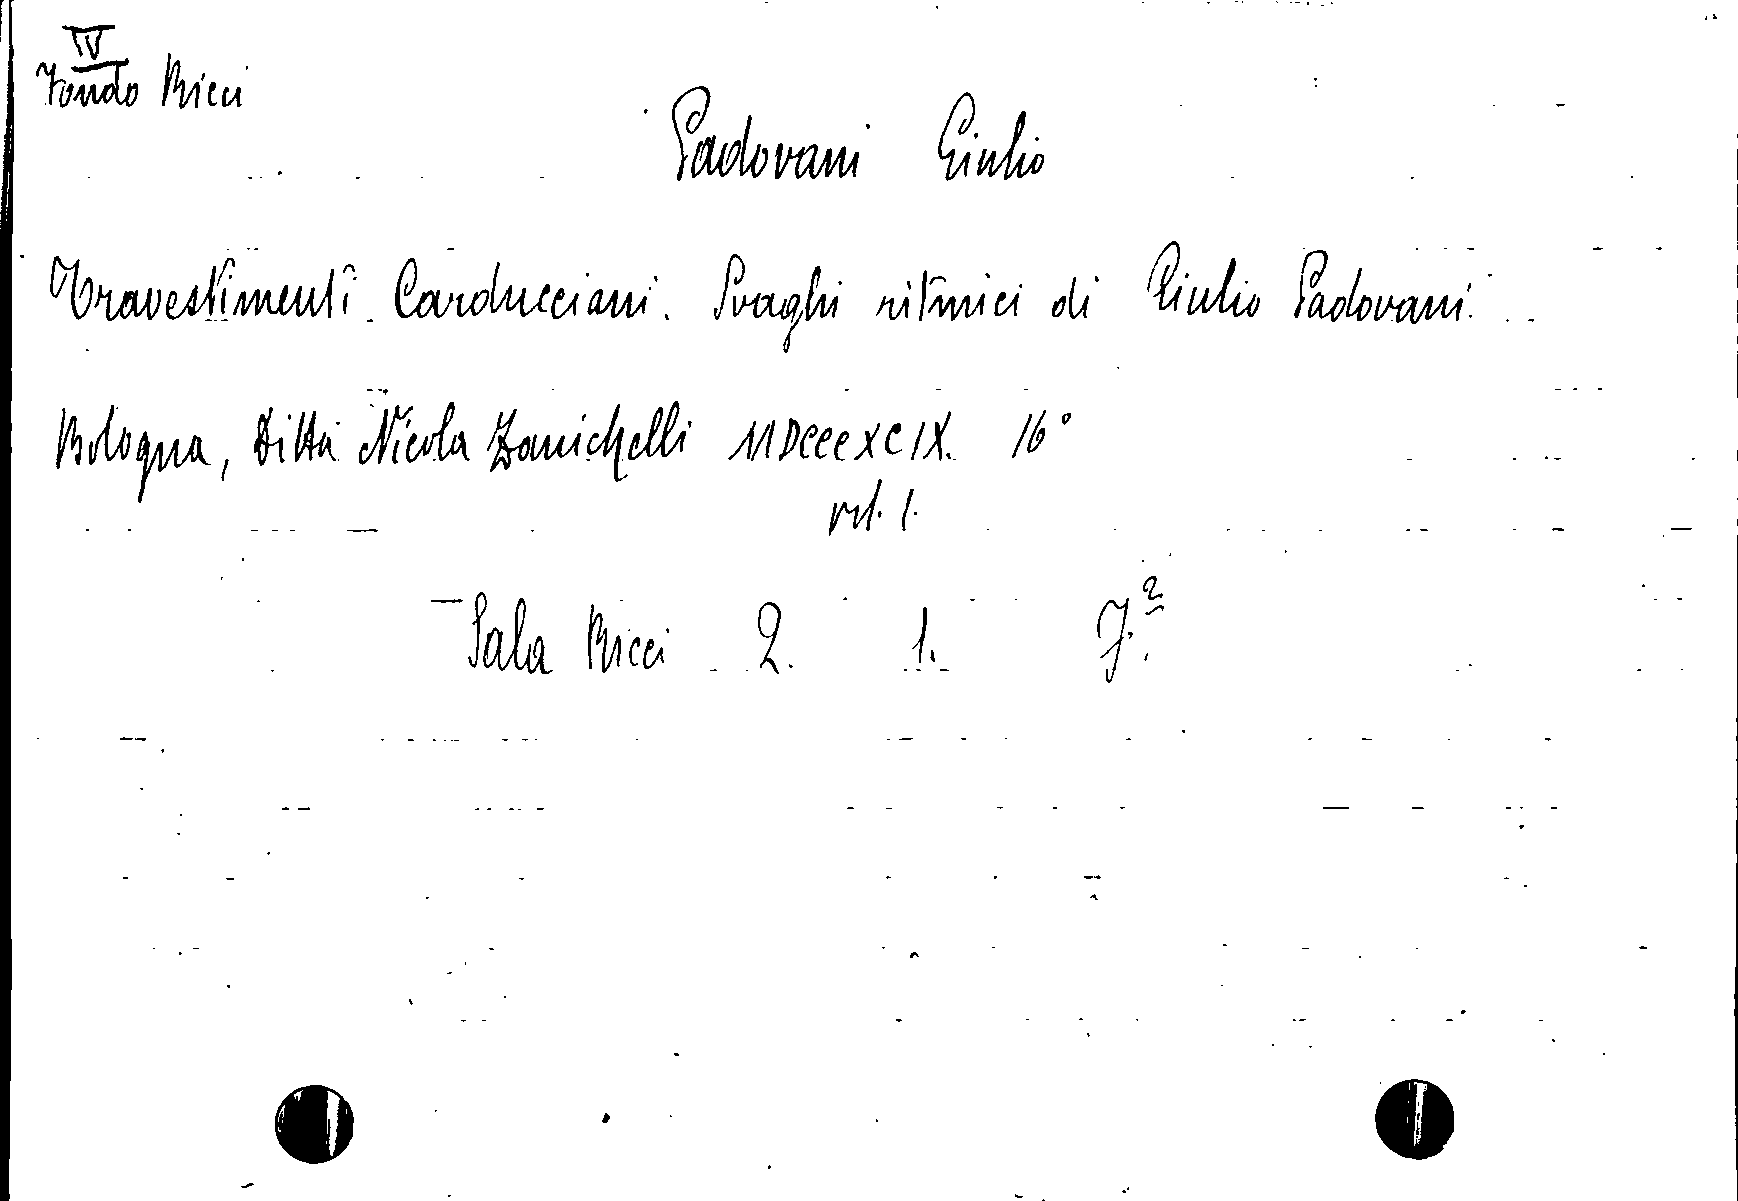 IV
Fondo Ricci
Padovani Giulio
Travestimenti Carducciani. Svaghi ritmici di Giulio Padovani.
Bologna, Ditta Nicola Zanichelli MDCCCXCIX. 16°
vol. 1.
Sala Ricci 2. 1. 7.²